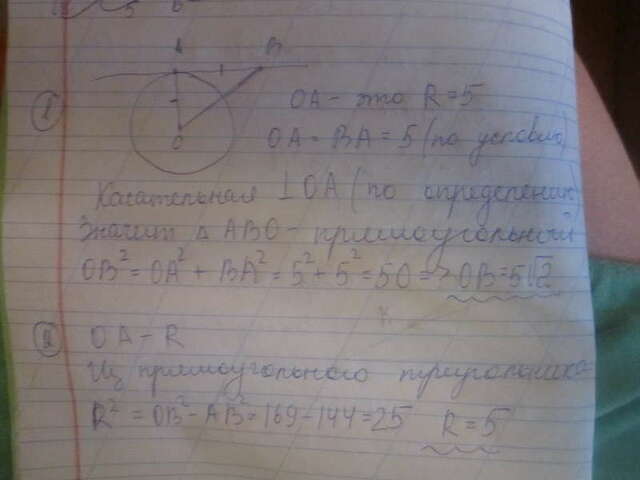 A B
O
① OA - это R = 5
OA = BA = 5 (по условию)
Касательная ⊥ OA (по определению)
Значит △ ABO - прямоугольный
OB² = OA² + BA² = 5² + 5² = 50 => OB = 5√2
② OA - R
Из прямоугольного треугольника
R² = OB² - AB² = 169 - 144 = 25 R = 5